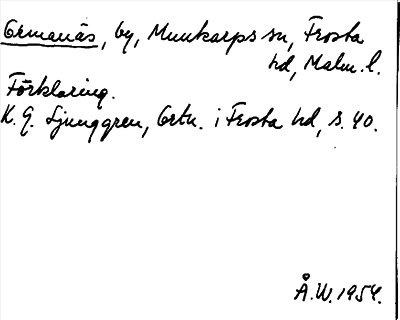 Ormanäs, by, Munkarps sn, Frosta
hd, Malm. l.
Förklaring.
K. G. Ljunggren, Ortn. i Frosta hd, s. 40.
Å.W. 1954.